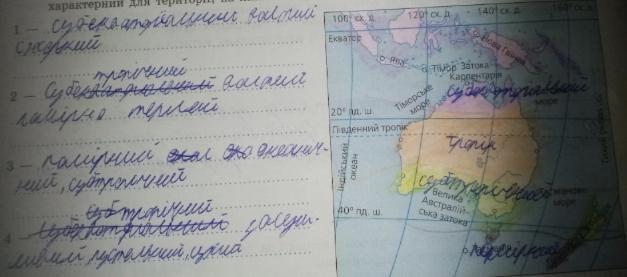 характерний для території, на
1 — субекваторіальний вологий
спекотний
тропічний
2 — Субекваторіальний вологий
помірно теплий
3 — помірний океаніч-
ний, субтропічний
субтропічний
4 — Субекваторіальний
пустельний, сухий
100° сх. д.
120° сх. д.
140° сх. д.
160° сх. д.
Екватор
о. Нова Гвінея
о. Ява
о. Тімор
Затока
Карпентарія
Тіморське
море
субекваторіальний
море
20° пд. ш.
Південний тропік
Тропік
Індійський
океан
субтропічний
Велика
Австралій-
ська затока
море
40° пд. ш.
помірний